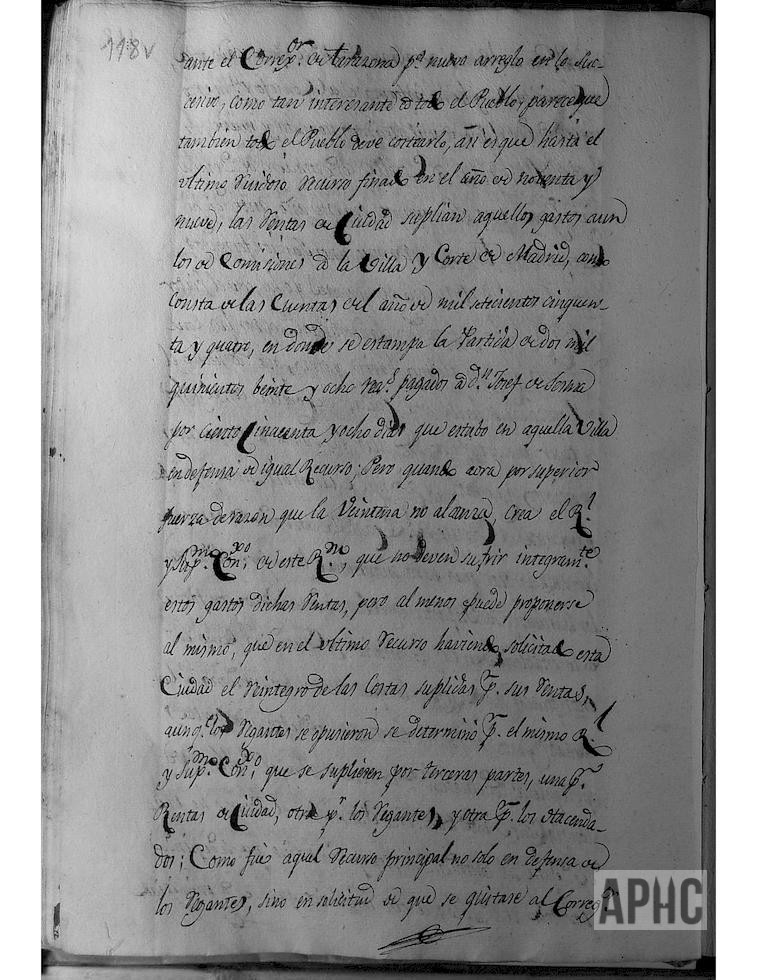 118v
ante el Correx.or de tarazona p.a nuevo arreglo en lo suc-
cesivo, como tan interesante a todo el Pueblo, parece que
tambien todo el Pueblo deve costearlo, asi es que hasta el
ultimo Ruidoso Recurso finado en el año de noventa y
nueve, las Rentas de Ciudad suplian aquellos gastos aun
los de Comisiones a la Villa y Corte de Madrid, como
consta de las Cuentas del año de mil setecientos cinquen-
ta y quatro, en donde se estampa la Partida de dos mil
quinientos beinte y ocho rea.s pagados a d.n Josef de
por ciento Cinquenta y ocho dias que estubo en aquella Villa
en defensa de igual Recurso; Pero quando aora por superior
fuerza de razon que la Veintena no alcanza, crea el R.l
y Sup.mo Con.xo de este R.no, que no deven sufrir integram.te
estos gastos dichas Rentas, pero al menos puede proponerse
al mismo, que en el ultimo Recurso haviendo solicitado esta
Ciudad el Reintegro de las Costas suplidas p.r sus Rentas,
aunq.e los Regantes se opusieron se determinó p.r el mismo R.l
y Sup.mo Con.xo, que se supliesen por terceras partes, una p.r
Rentas de Ciudad, otra p.r los Regantes, y otra p.r los Hacenda-
dos; Como fue aquel Recurso principal no solo en defensa de
los Regantes, sino en solicitud de que se quitase al Correg.or
APHC